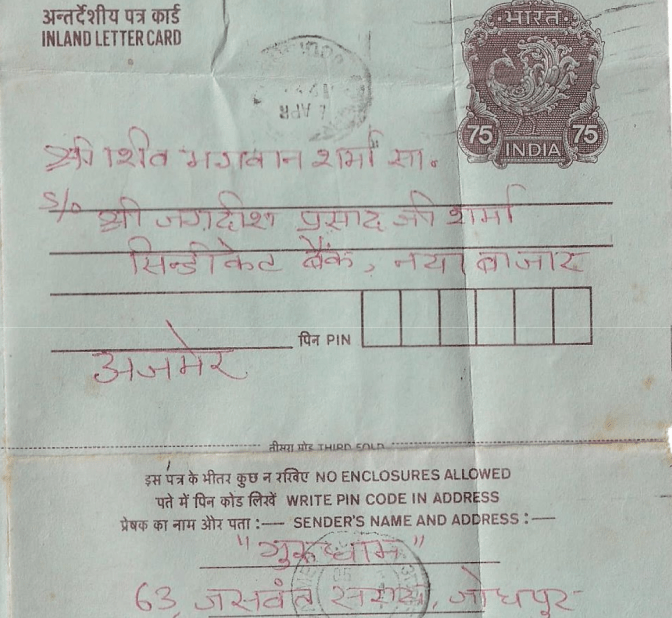 अन्तर्देशीय पत्र कार्ड
INLAND LETTER CARD
भारत
75 75
INDIA
7 APR
श्री शिव भगवान शर्मा सा.
S/o श्री जगदीश प्रसाद जी शर्मा
सिन्डीकेट बैंक, नया बाजार
पिन PIN
अजमेर
तीसरा मोड़ THIRD FOLD
इस पत्र के भीतर कुछ न रखिए NO ENCLOSURES ALLOWED
पते में पिन कोड लिखें WRITE PIN CODE IN ADDRESS
प्रेषक का नाम और पता :— SENDER'S NAME AND ADDRESS :—
"गुरुधाम"
63, जसवंत सराय, जोधपुर